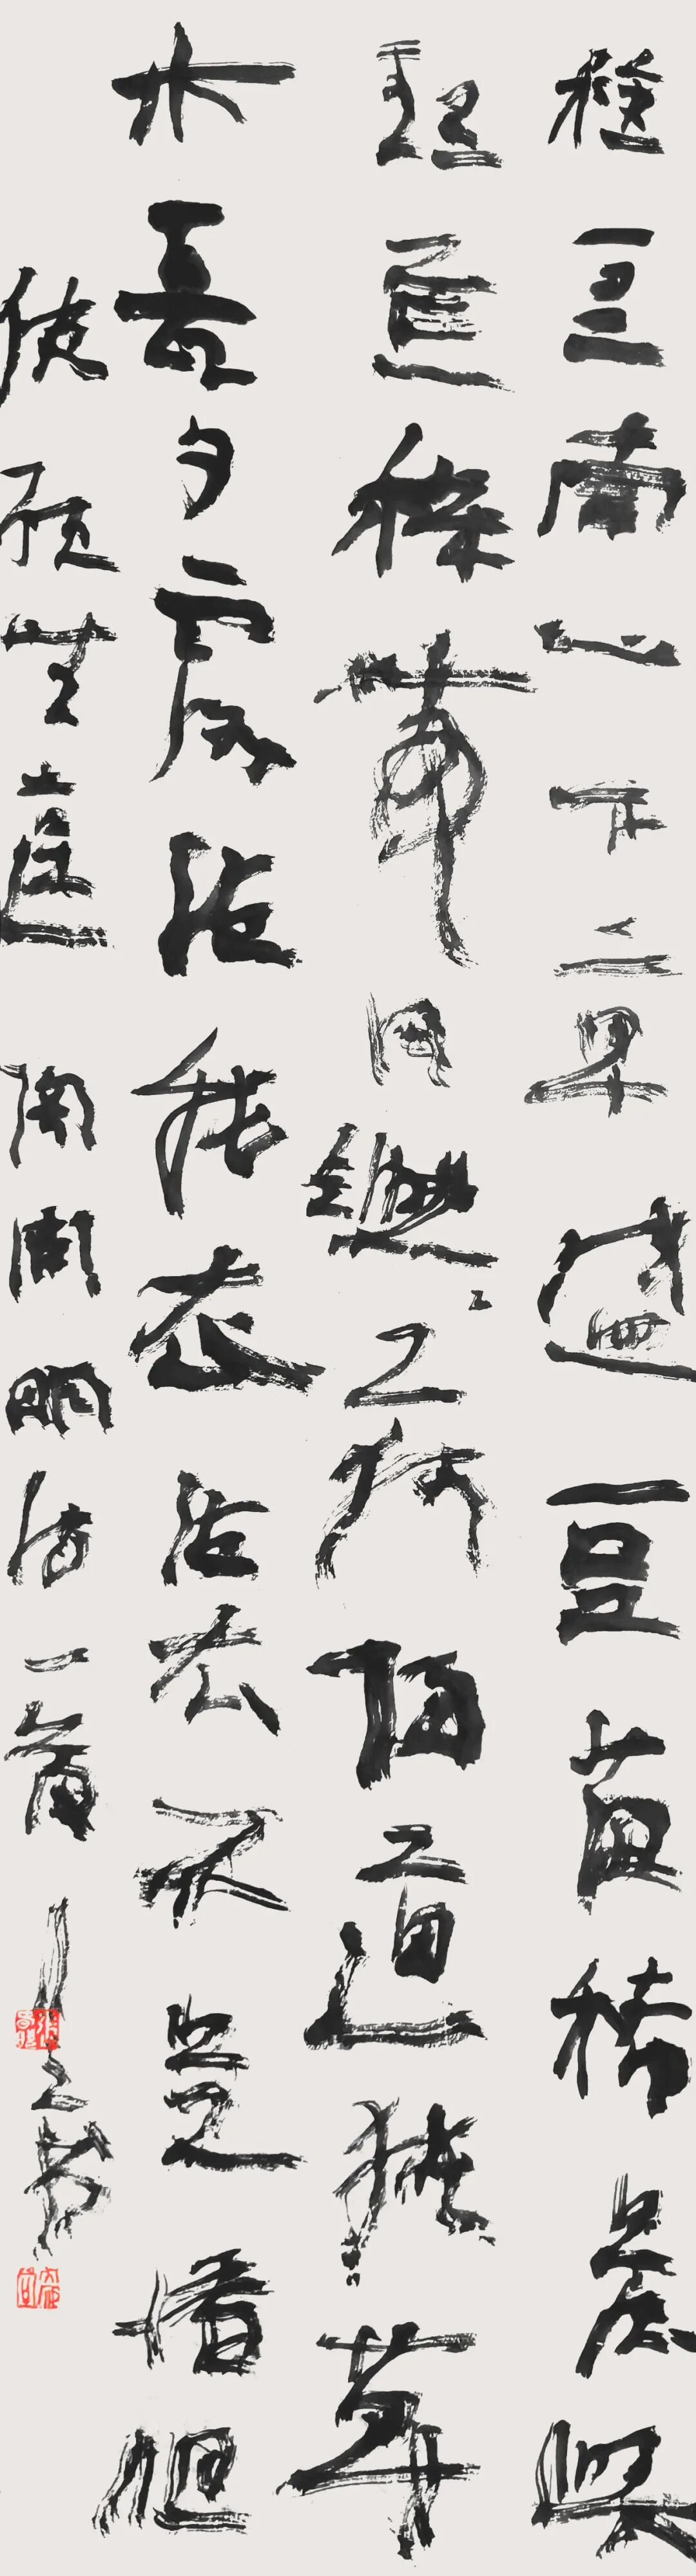 種豆南山下草盛豆苗稀晨興
理荒穢帶月荷鋤歸道狹草
木長夕露沾我衣沾衣不足惜但
使願無違 陶淵明詩一首